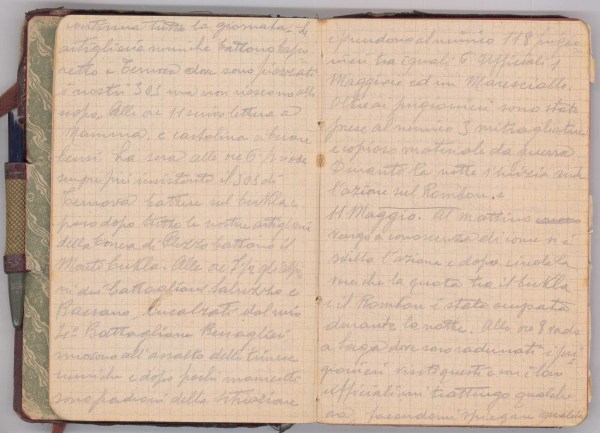 continua tutta la giornata. Le
artiglierie nemiche battono Capo
retto e Ternova dove sono piazzati
i nostri 305 ma non riescono allo
scopo. Alle ore 11 scrivo lettera a
Mamma e cartolina a
La sera alle ore 6 si ode
sempre più insistente il 305 di
Ternova battere sul Cukla e
poco dopo tutte le nostre artiglierie
della Conca di Plezzo battono il
Monte Cukla. Alle ore 7½ gli alpi
ni dei battaglioni Saluzzo e
Bassano, rincalzati dal mio
Battaglione Bersaglieri
muovono all'assalto delle trincee
nemiche e dopo pochi momenti
sono padroni della situazione
e prendono al nemico 118 prigio
nieri tra i quali 6 Ufficiali 1
Maggiore ed un Maresciallo.
Oltre ai prigionieri sono state
prese al nemico 3 mitragliatrici
e copioso materiale da guerra
Durante la notte s'inizia
l'azione sul Rombon.
11 Maggio. Al mattino
vengo a conoscenza di come si è
svolta l'azione e dopo
ma che la quota tra il Cukla
e il Rombon è stata occupata
durante la notte. Alle ore 8 vado
a Saga dove sono radunati i prigi
onieri visito questi e con i loro
ufficiali mi trattengo qualche
ora facendomi spiegare qualche